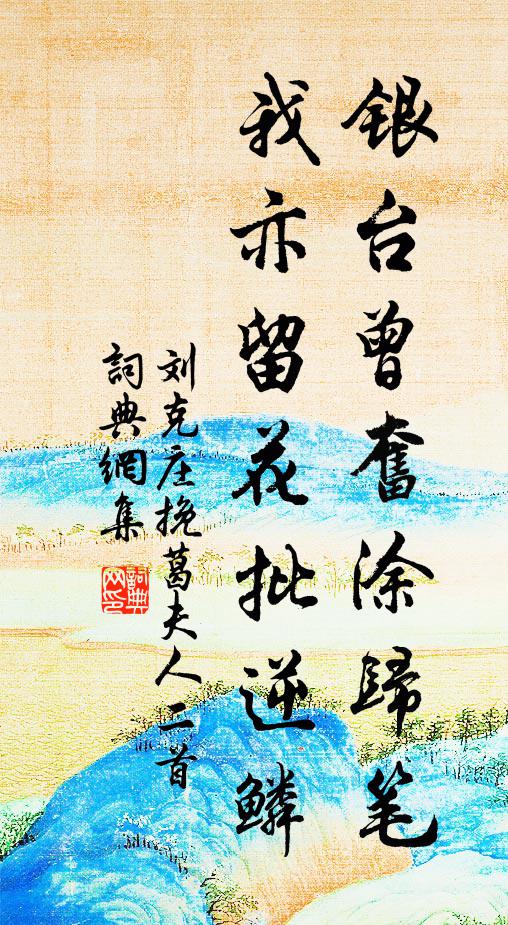 银台曾奮涂歸笔
我亦留花批逆鳞
刘克庄挽葛夫人二首
詞典網集
詞典网印